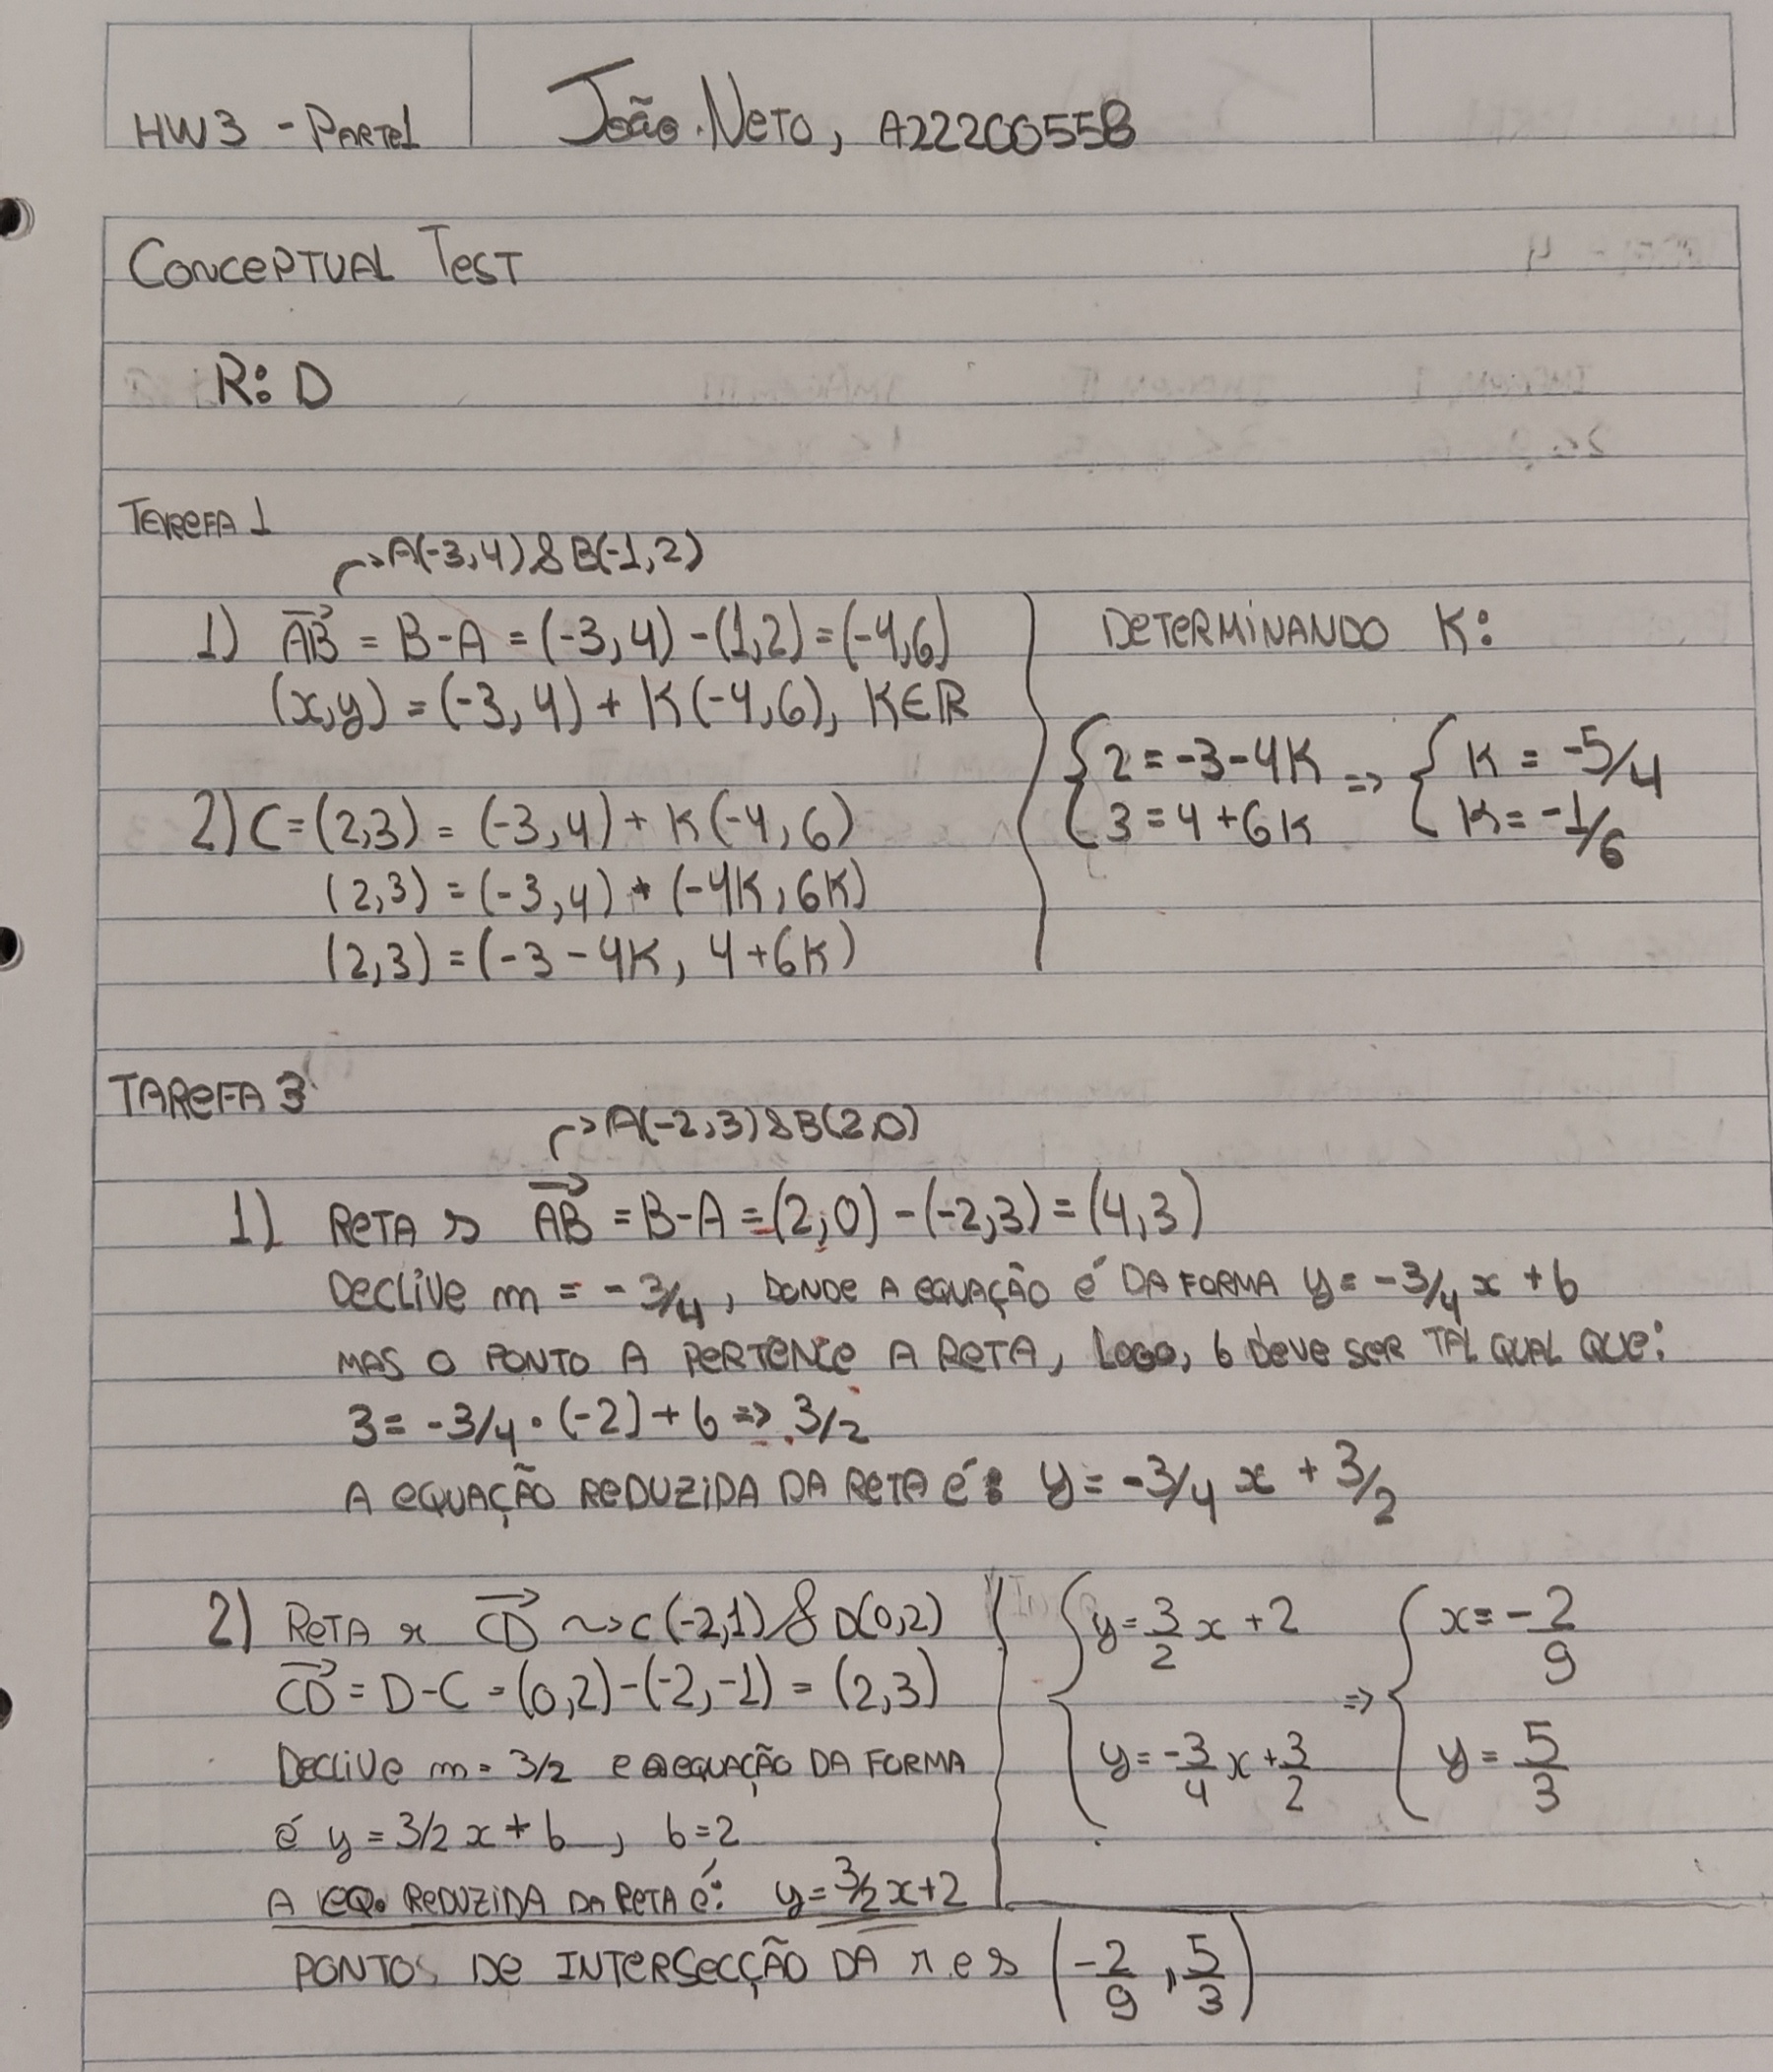 HW3 - PARTE1
João Neto, A22200558
CONCEPTUAL TEST
R: D
TEREFA 1
→A(-3,4) & B(-1,2)
1) AB = B-A = (-3,4) - (1,2) = (-4,6)
(x,y) = (-3,4) + K(-4,6), K∈R
2) C = (2,3) = (-3,4) + K(-4,6)
(2,3) = (-3,4) + (-4K, 6K)
(2,3) = (-3 - 4K, 4+6K)
DETERMINANDO K:
{2 = -3-4K => {K = -5/4
{3 = 4+6K {K = -1/6
TAREFA 3
→A(-2,3) & B(2,0)
1) RETA s AB = B-A = (2,0) - (-2,3) = (4,3)
DECLIVE m = -3/4, DONDE A EQUAÇÃO É DA FORMA y = -3/4 x + b
MAS O PONTO A PERTENCE A RETA, LOGO, b DEVE SER TAL QUAL QUE:
3 = -3/4 · (-2) + b => 3/2
A EQUAÇÃO REDUZIDA DA RETA É: y = -3/4 x + 3/2
2) RETA r CD ~> C(-2,1) & D(0,2)
CD = D-C = (0,2) - (-2,-1) = (2,3)
DECLIVE m = 3/2 e a EQUAÇÃO DA FORMA
É y = 3/2 x + b, b=2
A EQ. REDUZIDA DA RETA É: y = 3/2 x + 2
{y = 3/2 x + 2 => {x = -2/9
{y = -3/4 x + 3/2 {y = 5/3
PONTOS DE INTERSECÇÃO DA r e s (-2/9, 5/3)